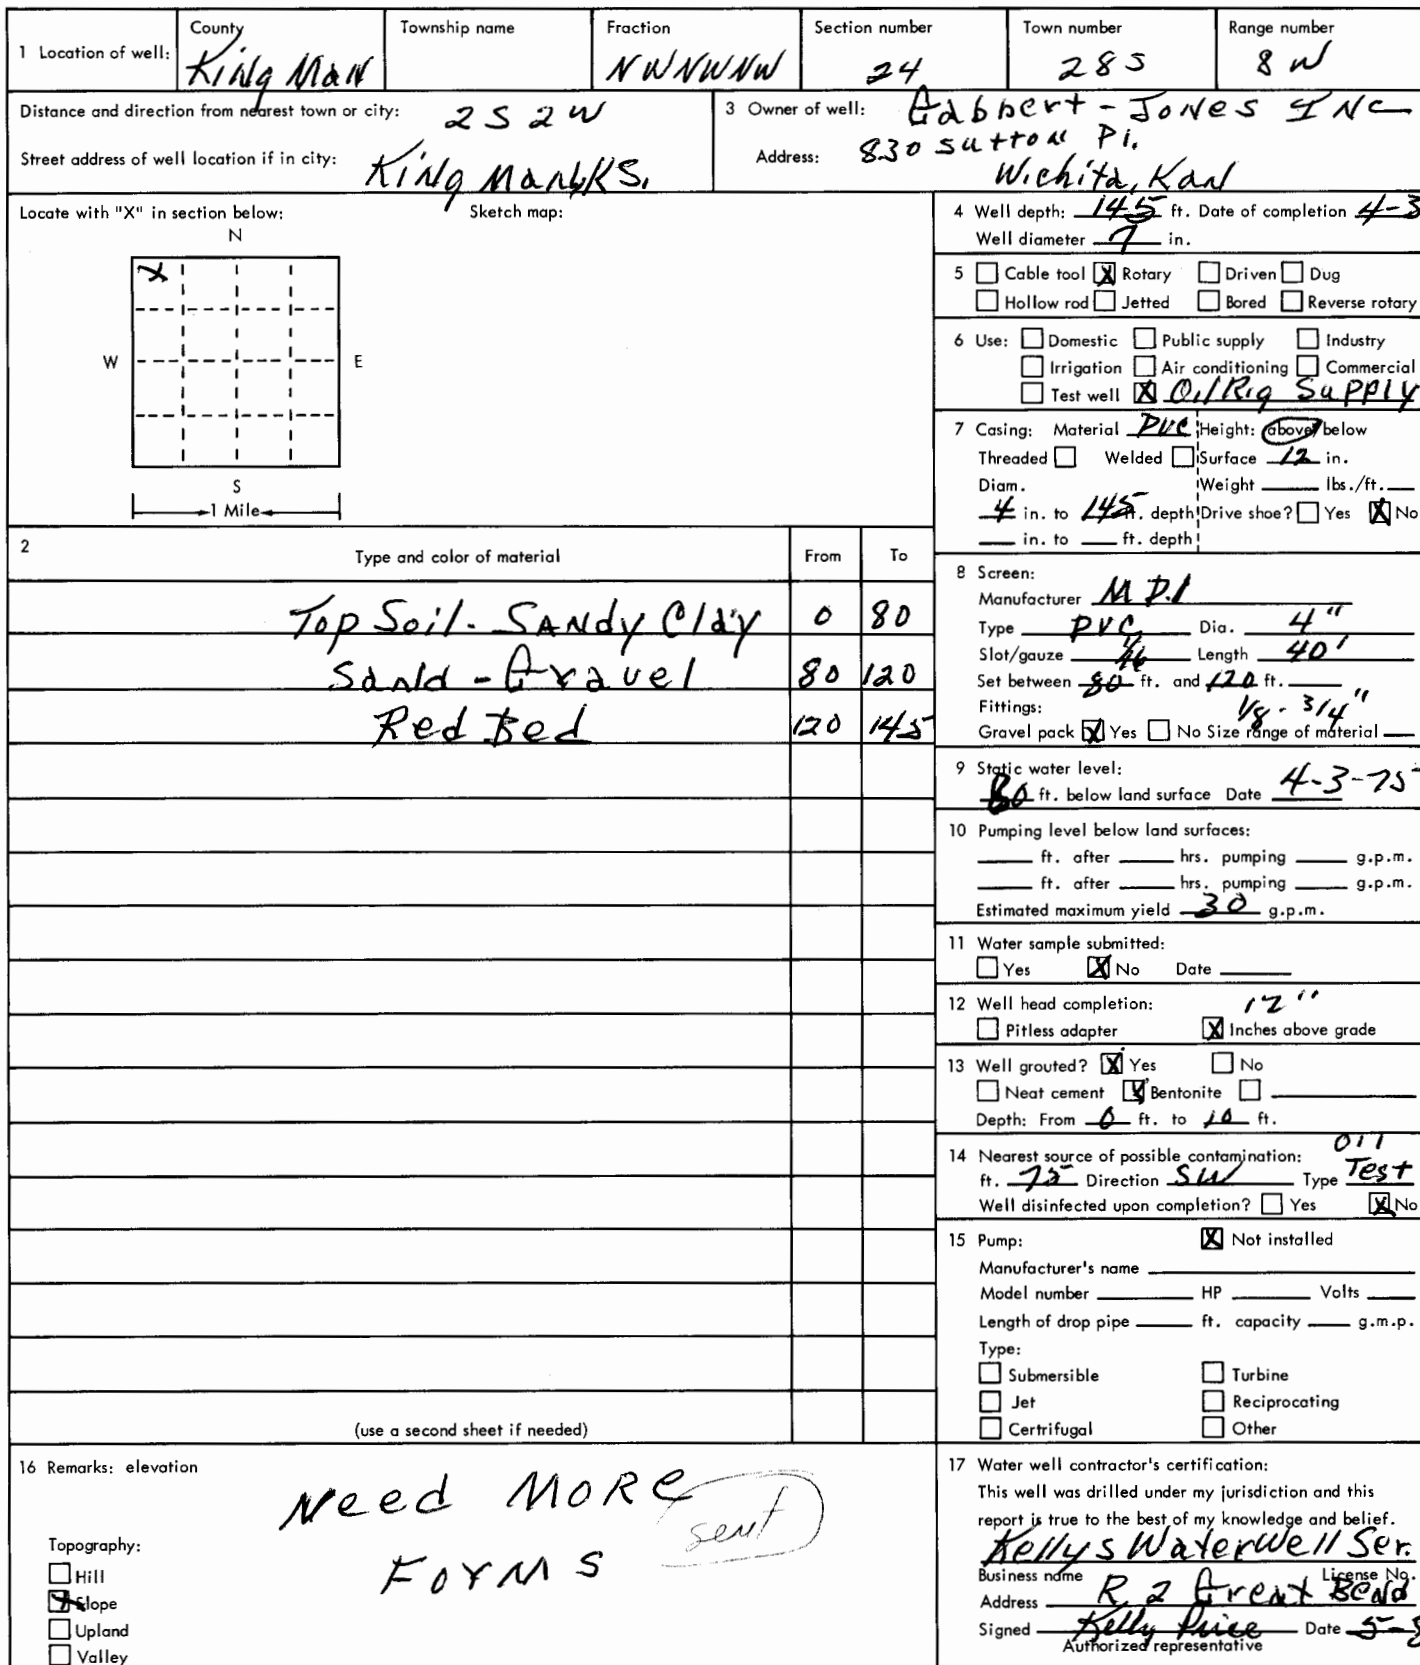 1 Location of well:
County
King Man
Township name
Fraction
NWNWNW
Section number
24
Town number
28S
Range number
8 W
Distance and direction from nearest town or city: 2 S 2 W
Street address of well location if in city: King Man, KS.
3 Owner of well: Gabbert - Jones INC
Address: 830 Sutton Pl.
Wichita, Kan
Locate with "X" in section below:
Sketch map:
N
X
W
E
S
1 Mile
4 Well depth: 145 ft. Date of completion 4-3
Well diameter 7 in.
5 Cable tool X Rotary Driven Dug
Hollow rod Jetted Bored Reverse rotary
6 Use: Domestic Public supply Industry
Irrigation Air conditioning Commercial
Test well X Oil Rig Supply
7 Casing: Material PVC Height: above/below
Threaded Welded Surface 12 in.
Diam. Weight lbs./ft.
4 in. to 145 ft. depth Drive shoe? Yes X No
in. to ft. depth
2
Type and color of material
From
To
Top Soil - SANdy Clay 0 80
Sand - Gravel 80 120
Red Bed 120 145
(use a second sheet if needed)
8 Screen:
Manufacturer M P.I
Type PVC Dia. 4"
Slot/gauze 1/16 Length 40'
Set between 80 ft. and 120 ft.
Fittings: 1/8 - 3/4"
Gravel pack X Yes No Size range of material
9 Static water level:
80 ft. below land surface Date 4-3-75
10 Pumping level below land surfaces:
ft. after hrs. pumping g.p.m.
ft. after hrs. pumping g.p.m.
Estimated maximum yield 30 g.p.m.
11 Water sample submitted:
Yes X No Date
12 Well head completion: 12"
Pitless adapter X Inches above grade
13 Well grouted? X Yes No
Neat cement X Bentonite
Depth: From 0 ft. to 10 ft.
14 Nearest source of possible contamination: Oil
ft. 75 Direction SW Type Test
Well disinfected upon completion? Yes X No
15 Pump: X Not installed
Manufacturer's name
Model number HP Volts
Length of drop pipe ft. capacity g.m.p.
Type:
Submersible Turbine
Jet Reciprocating
Certrifugal Other
16 Remarks: elevation
Need MORE
sent
FORMS
Topography:
Hill
X Slope
Upland
Valley
17 Water well contractor's certification:
This well was drilled under my jurisdiction and this
report is true to the best of my knowledge and belief.
Kellys WaterWell Ser.
Business name License No.
Address R 2 Great Bend
Signed Kelly Price Date 5-8
Authorized representative